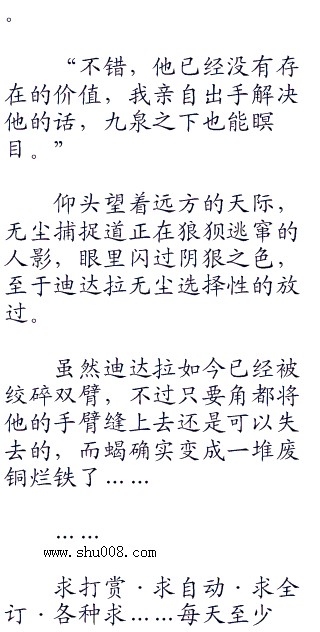 。
“不错，他已经没有存
在的价值，我亲自出手解决
他的话，九泉之下也能瞑
目。”
仰头望着远方的天际，
无尘捕捉道正在狼狈逃窜的
人影，眼里闪过阴狠之色，
至于迪达拉无尘选择性的放
过。
虽然迪达拉如今已经被
绞碎双臂，不过只要角都将
他的手臂缝上去还是可以失
去的，而蝎确实变成一堆废
铜烂铁了……
……
www.shu008.com
求打赏·求自动·求全
订·各种求……每天至少